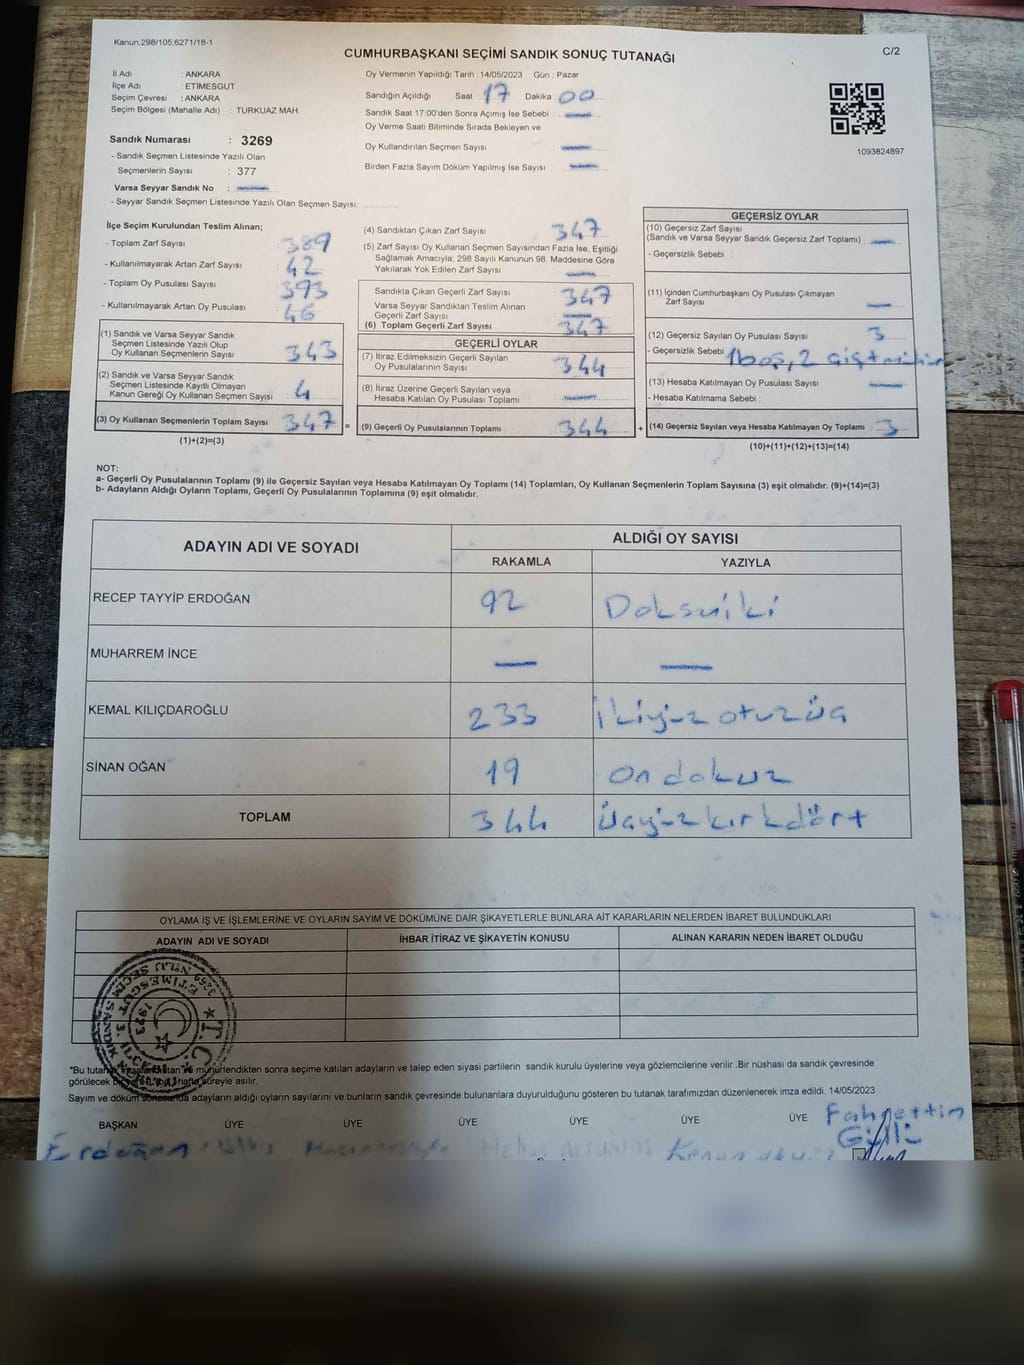 Kanun,298/105,6271/18-1
CUMHURBAŞKANI SEÇİMİ SANDIK SONUÇ TUTANAĞI
C/2
İl Adı : ANKARA
İlçe Adı : ETİMESGUT
Seçim Çevresi : ANKARA
Seçim Bölgesi (Mahalle Adı) : TURKUAZ MAH.
Sandık Numarası : 3269
- Sandık Seçmen Listesinde Yazılı Olan
Seçmenlerin Sayısı : 377
Varsa Seyyar Sandık No :
- Seyyar Sandık Seçmen Listesinde Yazılı Olan Seçmen Sayısı:
Oy Vermenin Yapıldığı Tarih : 14/05/2023 Gün : Pazar
Sandığın Açıldığı Saat : 17 Dakika 00
Sandık Saat 17:00'den Sonra Açımış İse Sebebi :
Oy Verme Saati Bitiminde Sırada Bekleyen ve
Oy Kullandırılan Seçmen Sayısı :
Birden Fazla Sayım Döküm Yapılmış İse Sayısı :
1093824897
İlçe Seçim Kurulundan Teslim Alınan;
- Toplam Zarf Sayısı : 389
- Kullanılmayarak Artan Zarf Sayısı : 42
- Toplam Oy Pusulası Sayısı : 393
- Kullanılmayarak Artan Oy Pusulası : 46
(1) Sandık ve Varsa Seyyar Sandık
Seçmen Listesinde Yazılı Olup
Oy Kullanan Seçmenlerin Sayısı : 343
(2) Sandık ve Varsa Seyyar Sandık
Seçmen Listesinde Kayıtlı Olmayan
Kanun Gereği Oy Kullanan Seçmen Sayısı : 4
(3) Oy Kullanan Seçmenlerin Toplam Sayısı : 347 =
(1)+(2)=(3)
(4) Sandıktan Çıkan Zarf Sayısı : 347
(5) Zarf Sayısı Oy Kullanan Seçmen Sayısından Fazla İse, Eşitliği
Sağlamak Amacıyla; 298 Sayılı Kanunun 98. Maddesine Göre
Yakılarak Yok Edilen Zarf Sayısı :
Sandıkta Çıkan Geçerli Zarf Sayısı : 347
Varsa Seyyar Sandıktan Teslim Alınan
Geçerli Zarf Sayısı :
(6) Toplam Geçerli Zarf Sayısı : 347
GEÇERLİ OYLAR
(7) İtiraz Edilmeksizin Geçerli Sayılan
Oy Pusulalarının Sayısı : 344
(8) İtiraz Üzerine Geçerli Sayılan veya
Hesaba Katılan Oy Pusulası Toplamı :
(9) Geçerli Oy Pusulalarının Toplamı : 344 +
GEÇERSİZ OYLAR
(10) Geçersiz Zarf Sayısı
(Sandık ve Varsa Seyyar Sandık Geçersiz Zarf Toplamı) :
- Geçersizlik Sebebi :
(11) İçinden Cumhurbaşkanı Oy Pusulası Çıkmayan
Zarf Sayısı :
(12) Geçersiz Sayılan Oy Pusulası Sayısı : 3
- Geçersizlik Sebebi : 1 boş, 2
(13) Hesaba Katılmayan Oy Pusulası Sayısı :
- Hesaba Katılmama Sebebi :
(14) Geçersiz Sayılan veya Hesaba Katılmayan Oy Toplamı : 3
(10)+(11)+(12)+(13)=(14)
NOT:
a- Geçerli Oy Pusulalarının Toplamı (9) ile Geçersiz Sayılan veya Hesaba Katılmayan Oy Toplamı (14) Toplamları, Oy Kullanan Seçmenlerin Toplam Sayısına (3) eşit olmalıdır. (9)+(14)=(3)
b- Adayların Aldığı Oyların Toplamı, Geçerli Oy Pusulalarının Toplamına (9) eşit olmalıdır.
ADAYIN ADI VE SOYADI ALDIĞI OY SAYISI
RAKAMLA YAZIYLA
RECEP TAYYİP ERDOĞAN 92 Doksaniki
MUHARREM İNCE
KEMAL KILIÇDAROĞLU 233 ikiyüz otuzüç
SİNAN OĞAN 19 on dokuz
TOPLAM 344 üçyüzkırkdört
OYLAMA İŞ VE İŞLEMLERİNE VE OYLARIN SAYIM VE DÖKÜMÜNE DAİR ŞİKAYETLERLE BUNLARA AİT KARARLARIN NELERDEN İBARET BULUNDUKLARI
ADAYIN ADI VE SOYADI İHBAR İTİRAZ VE ŞİKAYETİN KONUSU ALINAN KARARIN NEDEN İBARET OLDUĞU
T.C. ETİMESGUT 3. 3269 NOLU SEÇİM SANDIK 1923
*Bu tutanak imzalandıktan ve mühürlendikten sonra seçime katılan adayların ve talep eden siyasi partilerin sandık kurulu üyelerine veya gözlemcilerine verilir .Bir nüshası da sandık çevresinde
görülecek bir yere 1 hafta süreyle asılır.
Sayım ve döküm sonucunda adayların aldığı oyların sayılarını ve bunların sandık çevresinde bulunanlara duyurulduğunu gösteren bu tutanak tarafımızdan düzenlenerek imza edildi. 14/05/2023
BAŞKAN ÜYE ÜYE ÜYE ÜYE ÜYE ÜYE
Fahrettin
Güllü
Erdoğan